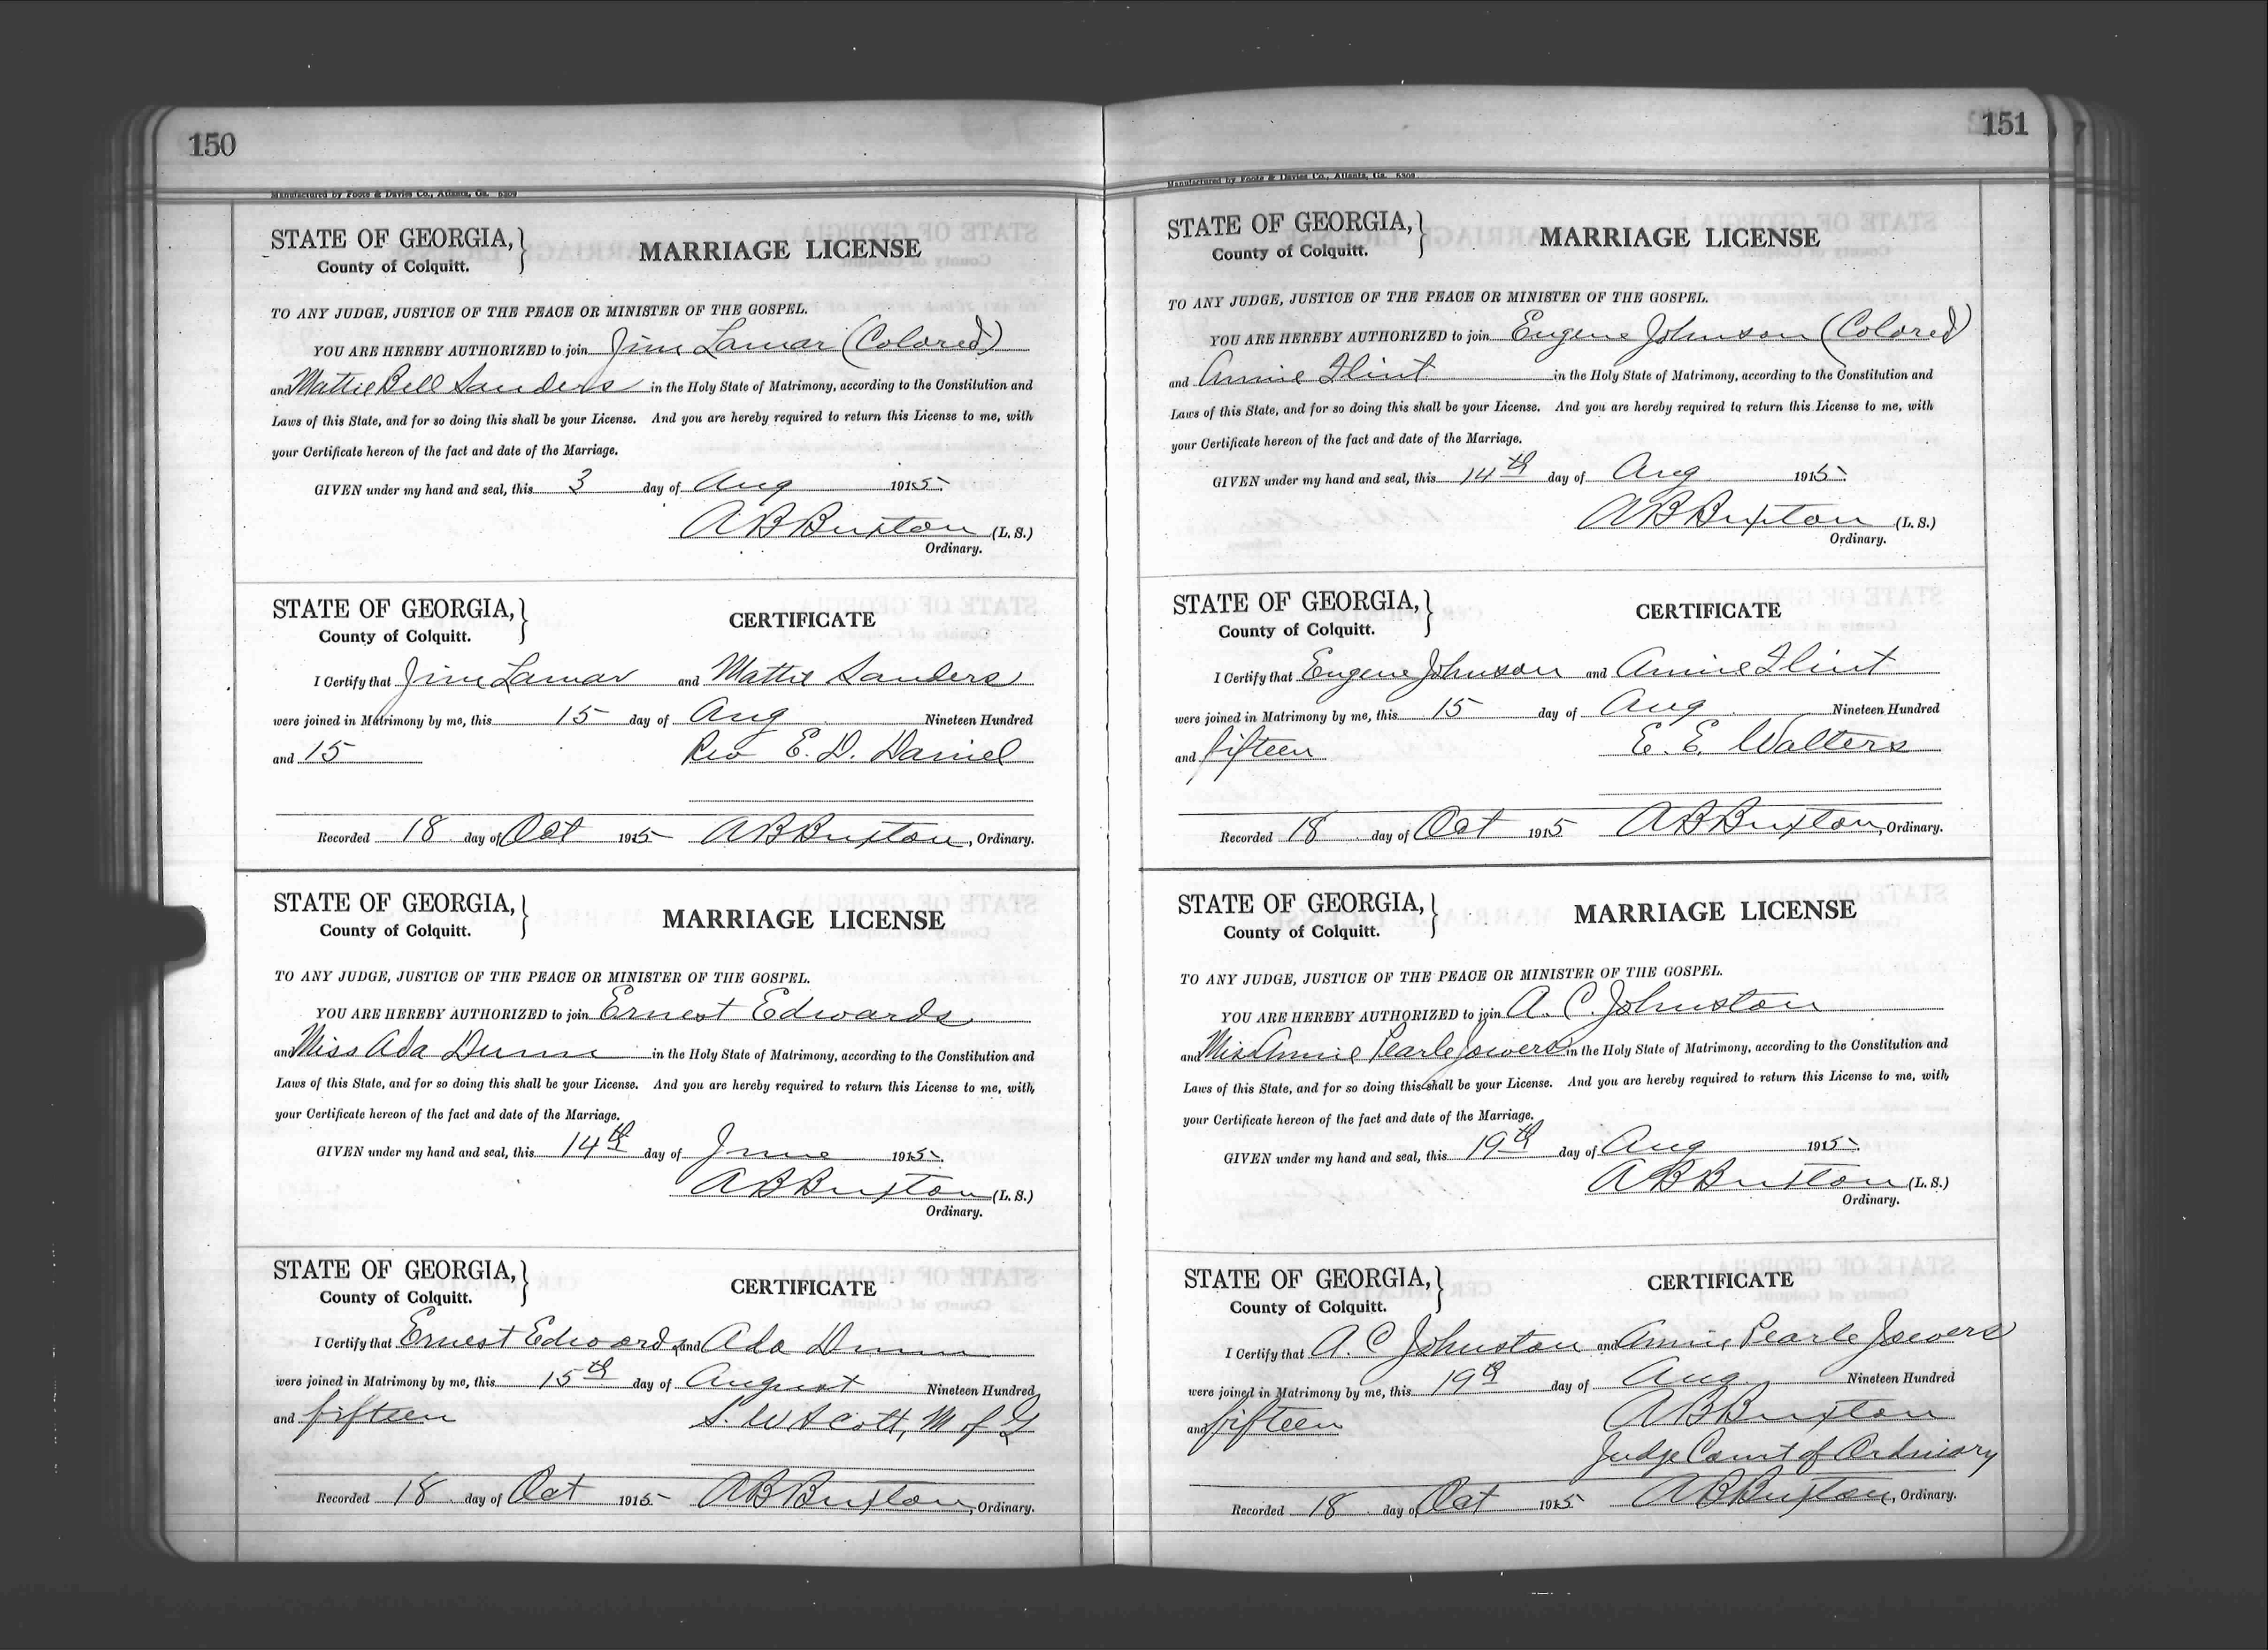 150
Manufactured by Foote & Davies Co., Atlanta, Ga. 6309
STATE OF GEORGIA,
County of Colquitt.
MARRIAGE LICENSE
TO ANY JUDGE, JUSTICE OF THE PEACE OR MINISTER OF THE GOSPEL.
YOU ARE HEREBY AUTHORIZED to join Jim Lamar (Colored)
and Mattie Bell Sanders in the Holy State of Matrimony, according to the Constitution and
Laws of this State, and for so doing this shall be your License. And you are hereby required to return this License to me, with
your Certificate hereon of the fact and date of the Marriage.
GIVEN under my hand and seal, this 3 day of Aug 1915.
A B Buxton (L. S.)
Ordinary.
STATE OF GEORGIA,
County of Colquitt.
CERTIFICATE
I Certify that Jim Lamar and Mattie Sanders
were joined in Matrimony by me, this 15 day of Aug Nineteen Hundred
and 15 Rev E. D. Daniel
Recorded 18 day of Oct 1915 A B Buxton, Ordinary.
STATE OF GEORGIA,
County of Colquitt.
MARRIAGE LICENSE
TO ANY JUDGE, JUSTICE OF THE PEACE OR MINISTER OF THE GOSPEL.
YOU ARE HEREBY AUTHORIZED to join Ernest Edwards
and Miss Ada Dunn in the Holy State of Matrimony, according to the Constitution and
Laws of this State, and for so doing this shall be your License. And you are hereby required to return this License to me, with
your Certificate hereon of the fact and date of the Marriage.
GIVEN under my hand and seal, this 14th day of June 1915.
A B Buxton (L. S.)
Ordinary.
STATE OF GEORGIA,
County of Colquitt.
CERTIFICATE
I Certify that Ernest Edwards and Ada Dunn
were joined in Matrimony by me, this 15th day of August Nineteen Hundred
and fifteen S. W Scott, M of G
Recorded 18 day of Oct 1915 A B Buxton, Ordinary.
151
Manufactured by Foote & Davies Co., Atlanta, Ga. 6309
STATE OF GEORGIA,
County of Colquitt.
MARRIAGE LICENSE
TO ANY JUDGE, JUSTICE OF THE PEACE OR MINISTER OF THE GOSPEL.
YOU ARE HEREBY AUTHORIZED to join Eugene Johnson (Colored)
and Annie Flint in the Holy State of Matrimony, according to the Constitution and
Laws of this State, and for so doing this shall be your License. And you are hereby required to return this License to me, with
your Certificate hereon of the fact and date of the Marriage.
GIVEN under my hand and seal, this 14th day of Aug 1915.
A B Buxton (L. S.)
Ordinary.
STATE OF GEORGIA,
County of Colquitt.
CERTIFICATE
I Certify that Eugene Johnson and Annie Flint
were joined in Matrimony by me, this 15 day of Aug Nineteen Hundred
and fifteen E. E. Walters
Recorded 18 day of Oct 1915 A B Buxton, Ordinary.
STATE OF GEORGIA,
County of Colquitt.
MARRIAGE LICENSE
TO ANY JUDGE, JUSTICE OF THE PEACE OR MINISTER OF THE GOSPEL.
YOU ARE HEREBY AUTHORIZED to join A. C. Johnston
and Miss Annie Pearle Jowers in the Holy State of Matrimony, according to the Constitution and
Laws of this State, and for so doing this shall be your License. And you are hereby required to return this License to me, with
your Certificate hereon of the fact and date of the Marriage.
GIVEN under my hand and seal, this 19th day of Aug 1915.
A B Buxton (L. S.)
Ordinary.
STATE OF GEORGIA,
County of Colquitt.
CERTIFICATE
I Certify that A. C Johnston and Annie Pearle Jowers
were joined in Matrimony by me, this 19th day of Aug. Nineteen Hundred
and fifteen A B Buxton
Judge Court of Ordinary
Recorded 18 day of Oct 1915 A B Buxton, Ordinary.